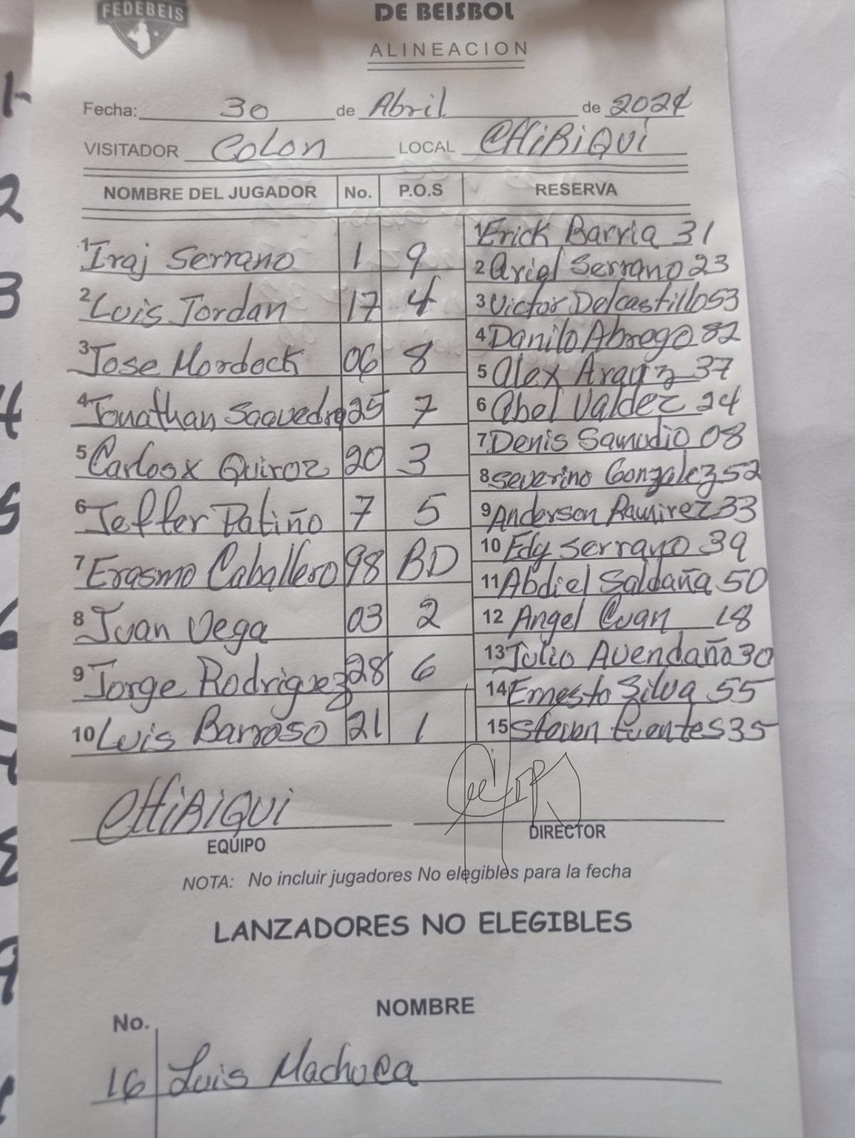 FEDEBEIS
DE BEISBOL
ALINEACION
Fecha: 30 de Abril de 2024
VISITADOR Colon LOCAL CHIRIQUI
NOMBRE DEL JUGADOR No. P.O.S RESERVA
1 Iraj Serrano 1 9
2 Luis Jordan 17 4
3 Jose Mordock 06 8
4 Jonathan Saavedra 25 7
5 Carloox Quiroz 20 3
6 Jeffer Patiño 7 5
7 Erasmo Caballero 98 BD
8 Juan Vega 03 2
9 Jorge Rodriguez 28 6
10 Luis Barroso 21 1
1 Erick Barria 31
2 Ariel Serrano 23
3 Victor Delcastillo 53
4 Danilo Abrego 82
5 Alex Arauz 37
6 Abel Valdez 24
7 Denis Samudio 08
8 Severino Gonzalez 52
9 Anderson Ramirez 33
10 Edy Serrano 39
11 Abdiel Saldaña 50
12 Angel Cuan 18
13 Julio Avendaño 30
14 Ernesto Silva 55
15 Steven Fuentes 35
CHIRIQUI
EQUIPO
DIRECTOR
NOTA: No incluir jugadores No elegibles para la fecha
LANZADORES NO ELEGIBLES
No. NOMBRE
16 Luis Machuca